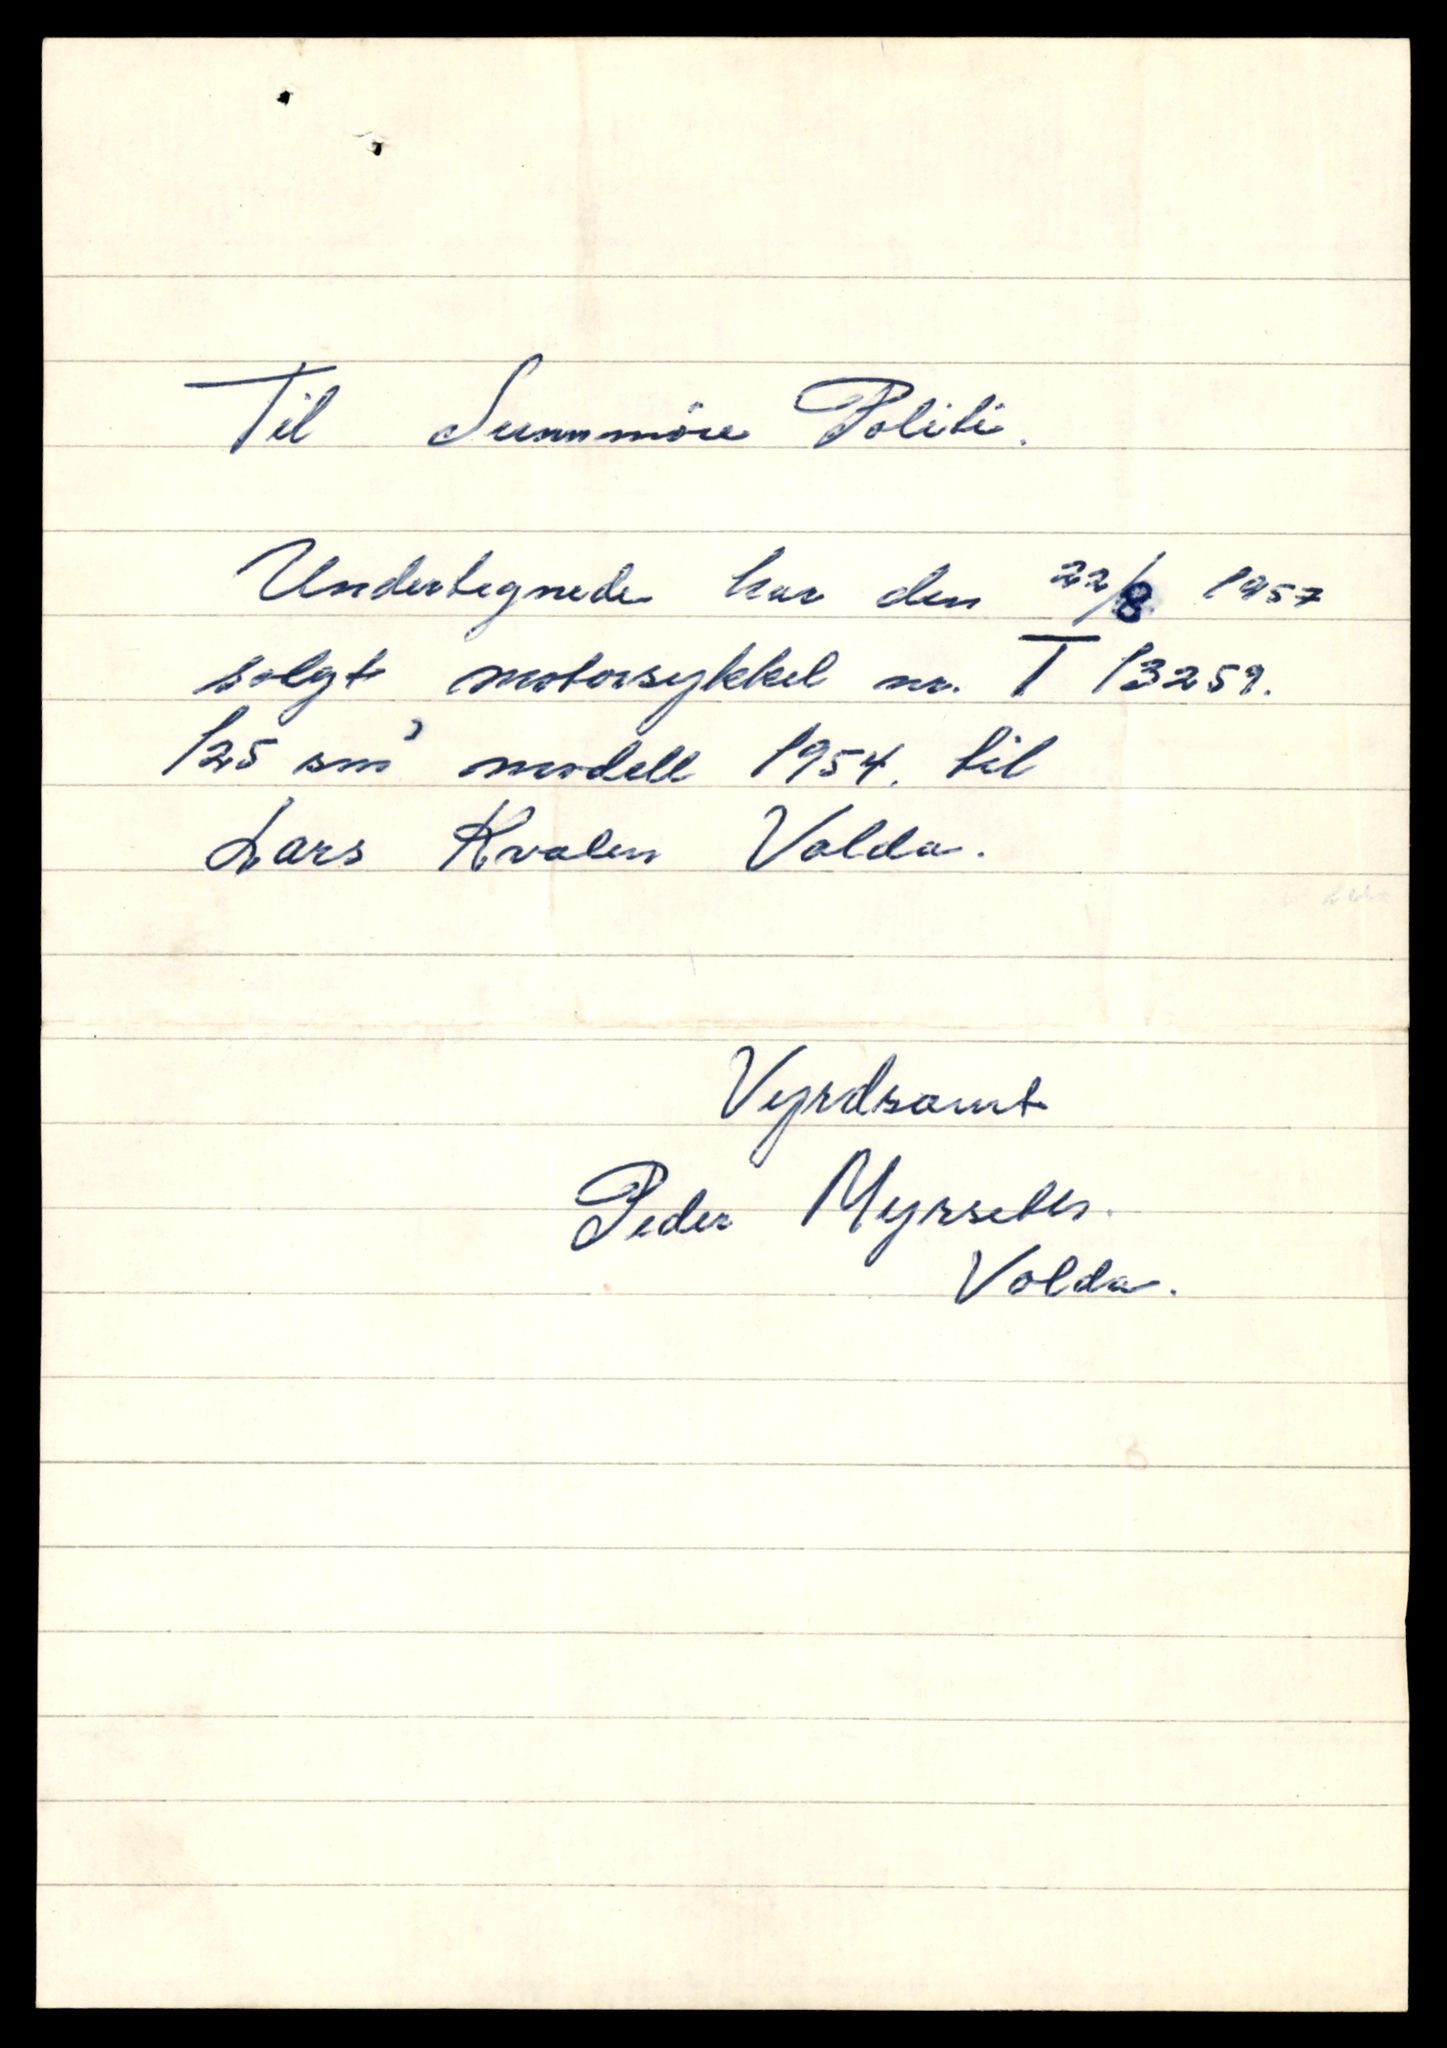 Til Sunnmöre Politi.
Undertegnede har den 22/8 1957
solgt motorsykkel nr. T 13259.
125 sm³ modell 1954. til
Lars Kvalen Volda.
Vyrdsamt
Peder Myrseth.
Volda.